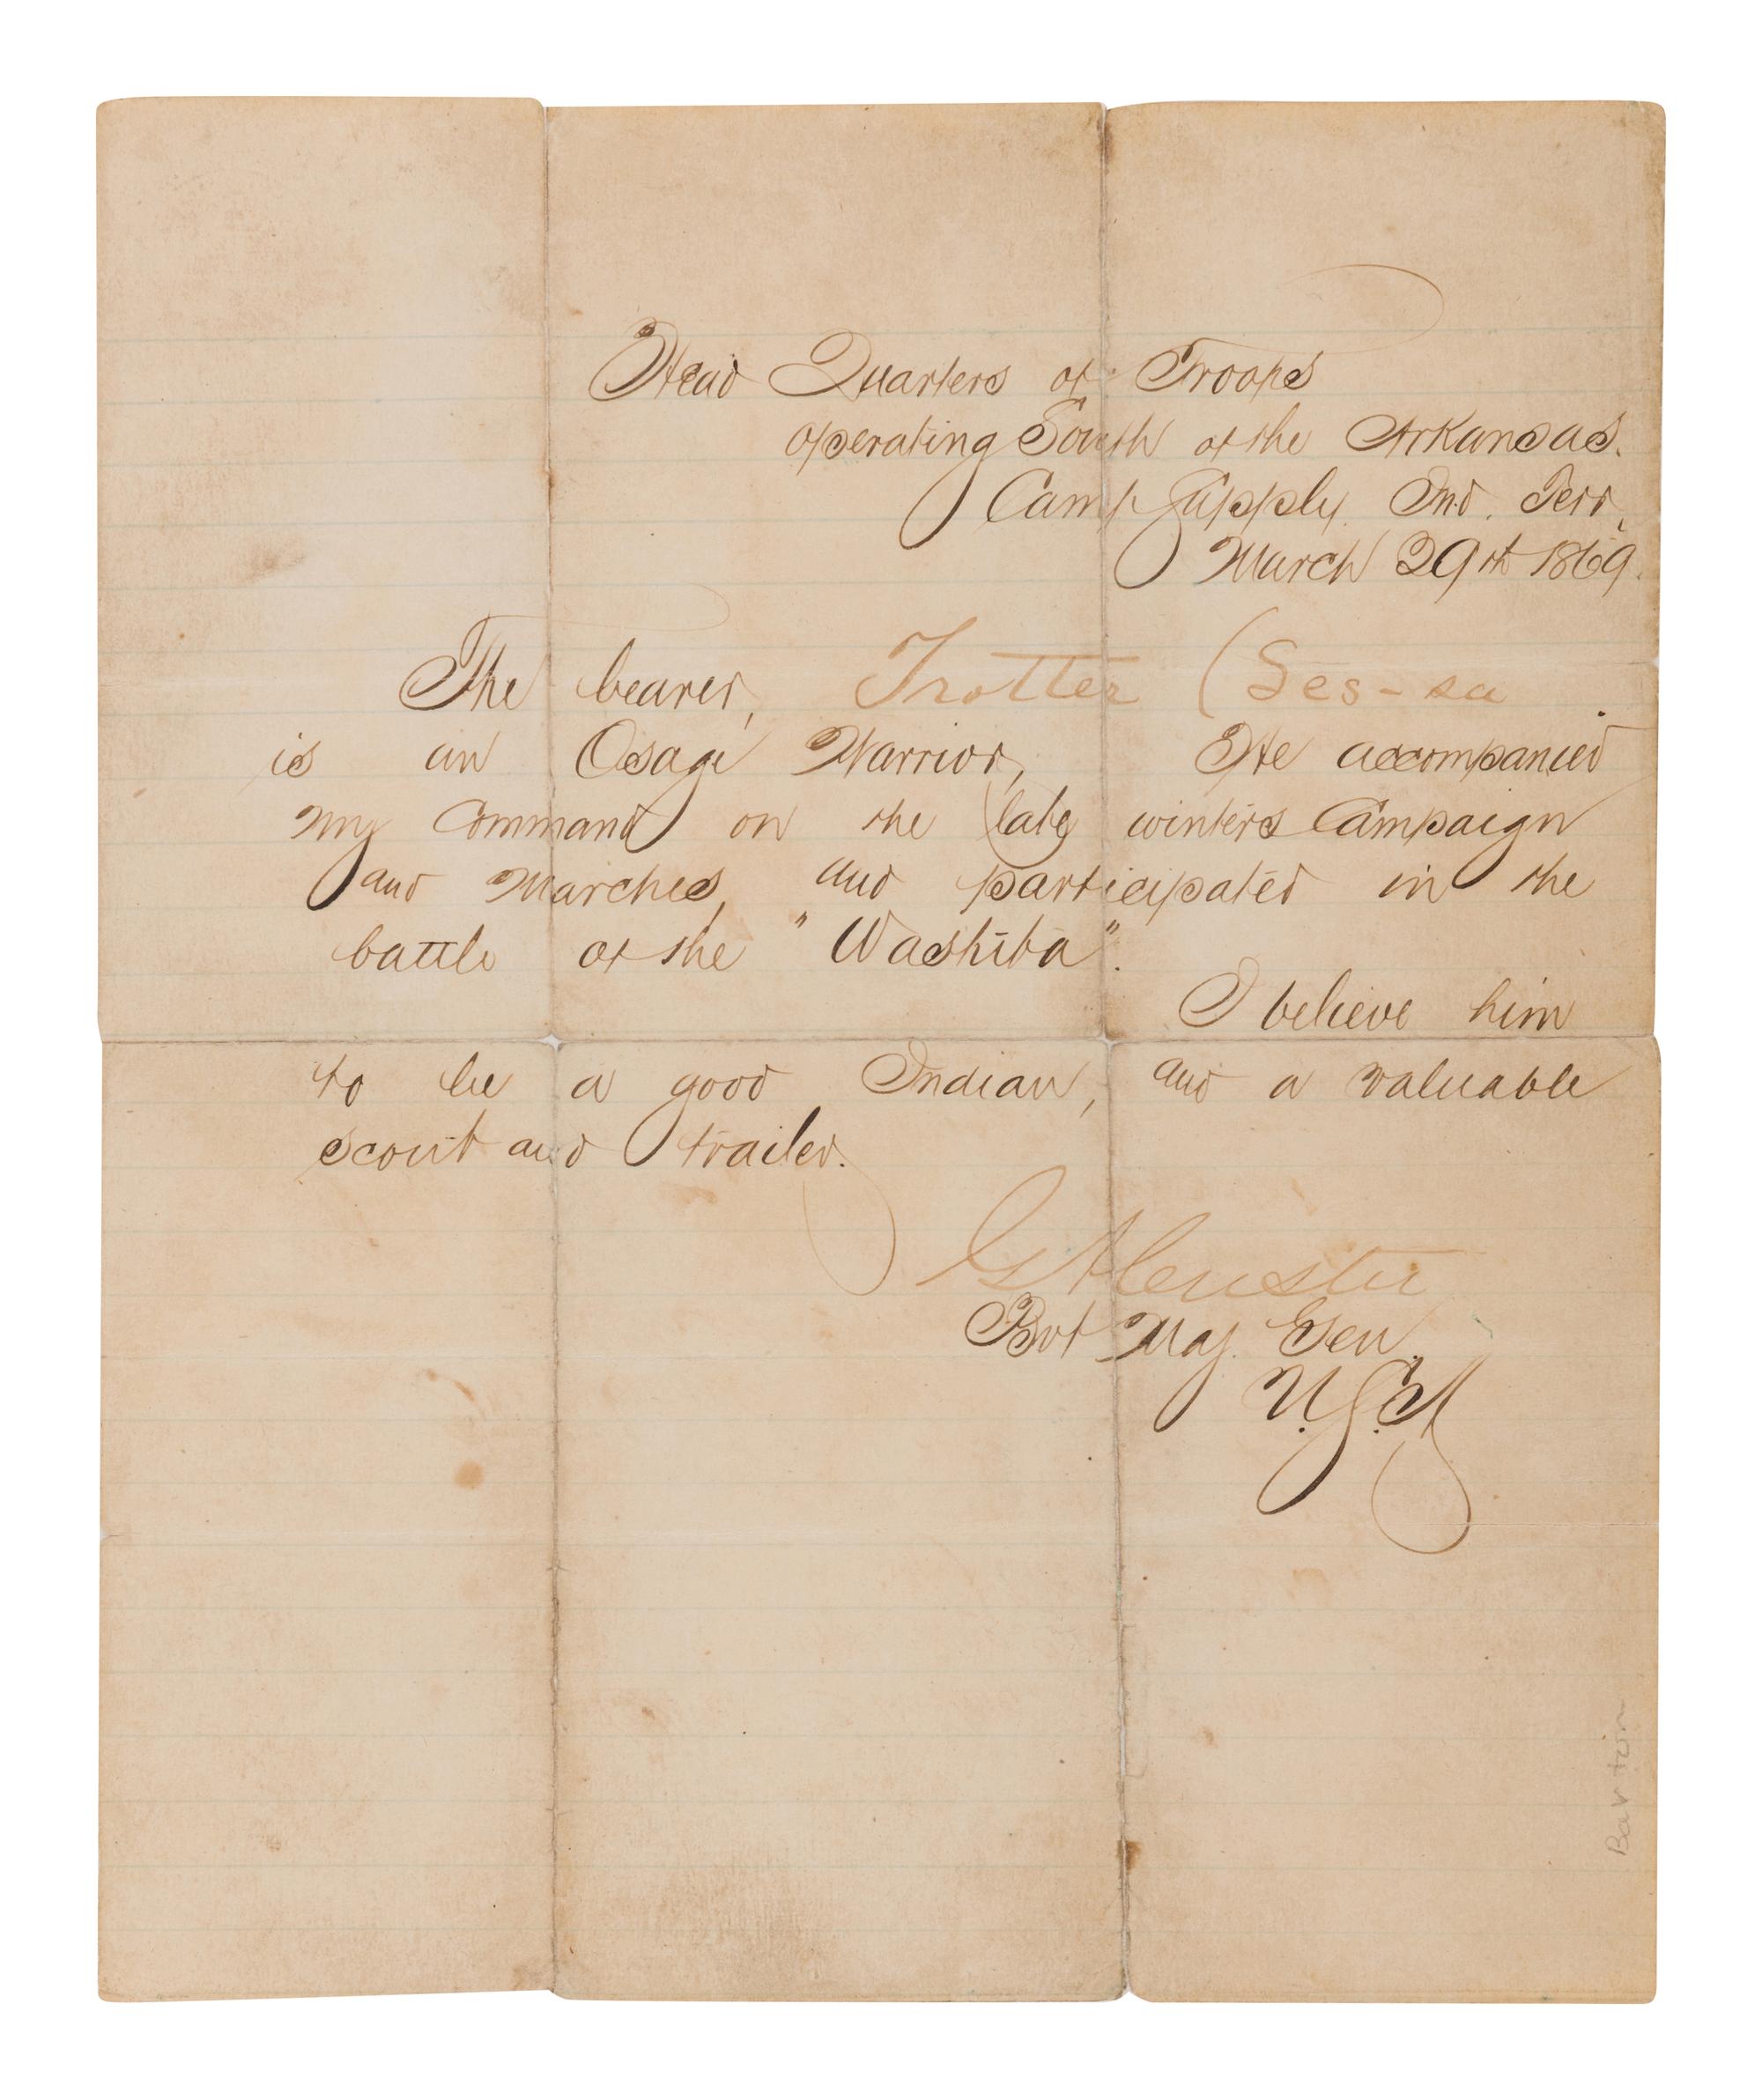 Head Quarters of Troops
operating South of the Arkansas.
Camp Supply. Ind. Terr,
March 29th 1869.
The bearer, Trotter (Ses-sa
is an Osage Warrior, He accompanied
my Command on the late winters Campaign
and Marches, and participated in the
battle of the "Washita".
I believe him
to be a good Indian, and a valuable
scout and trailer.
GACuster
Bvt Maj. Gen.
U.S.A
Bartim